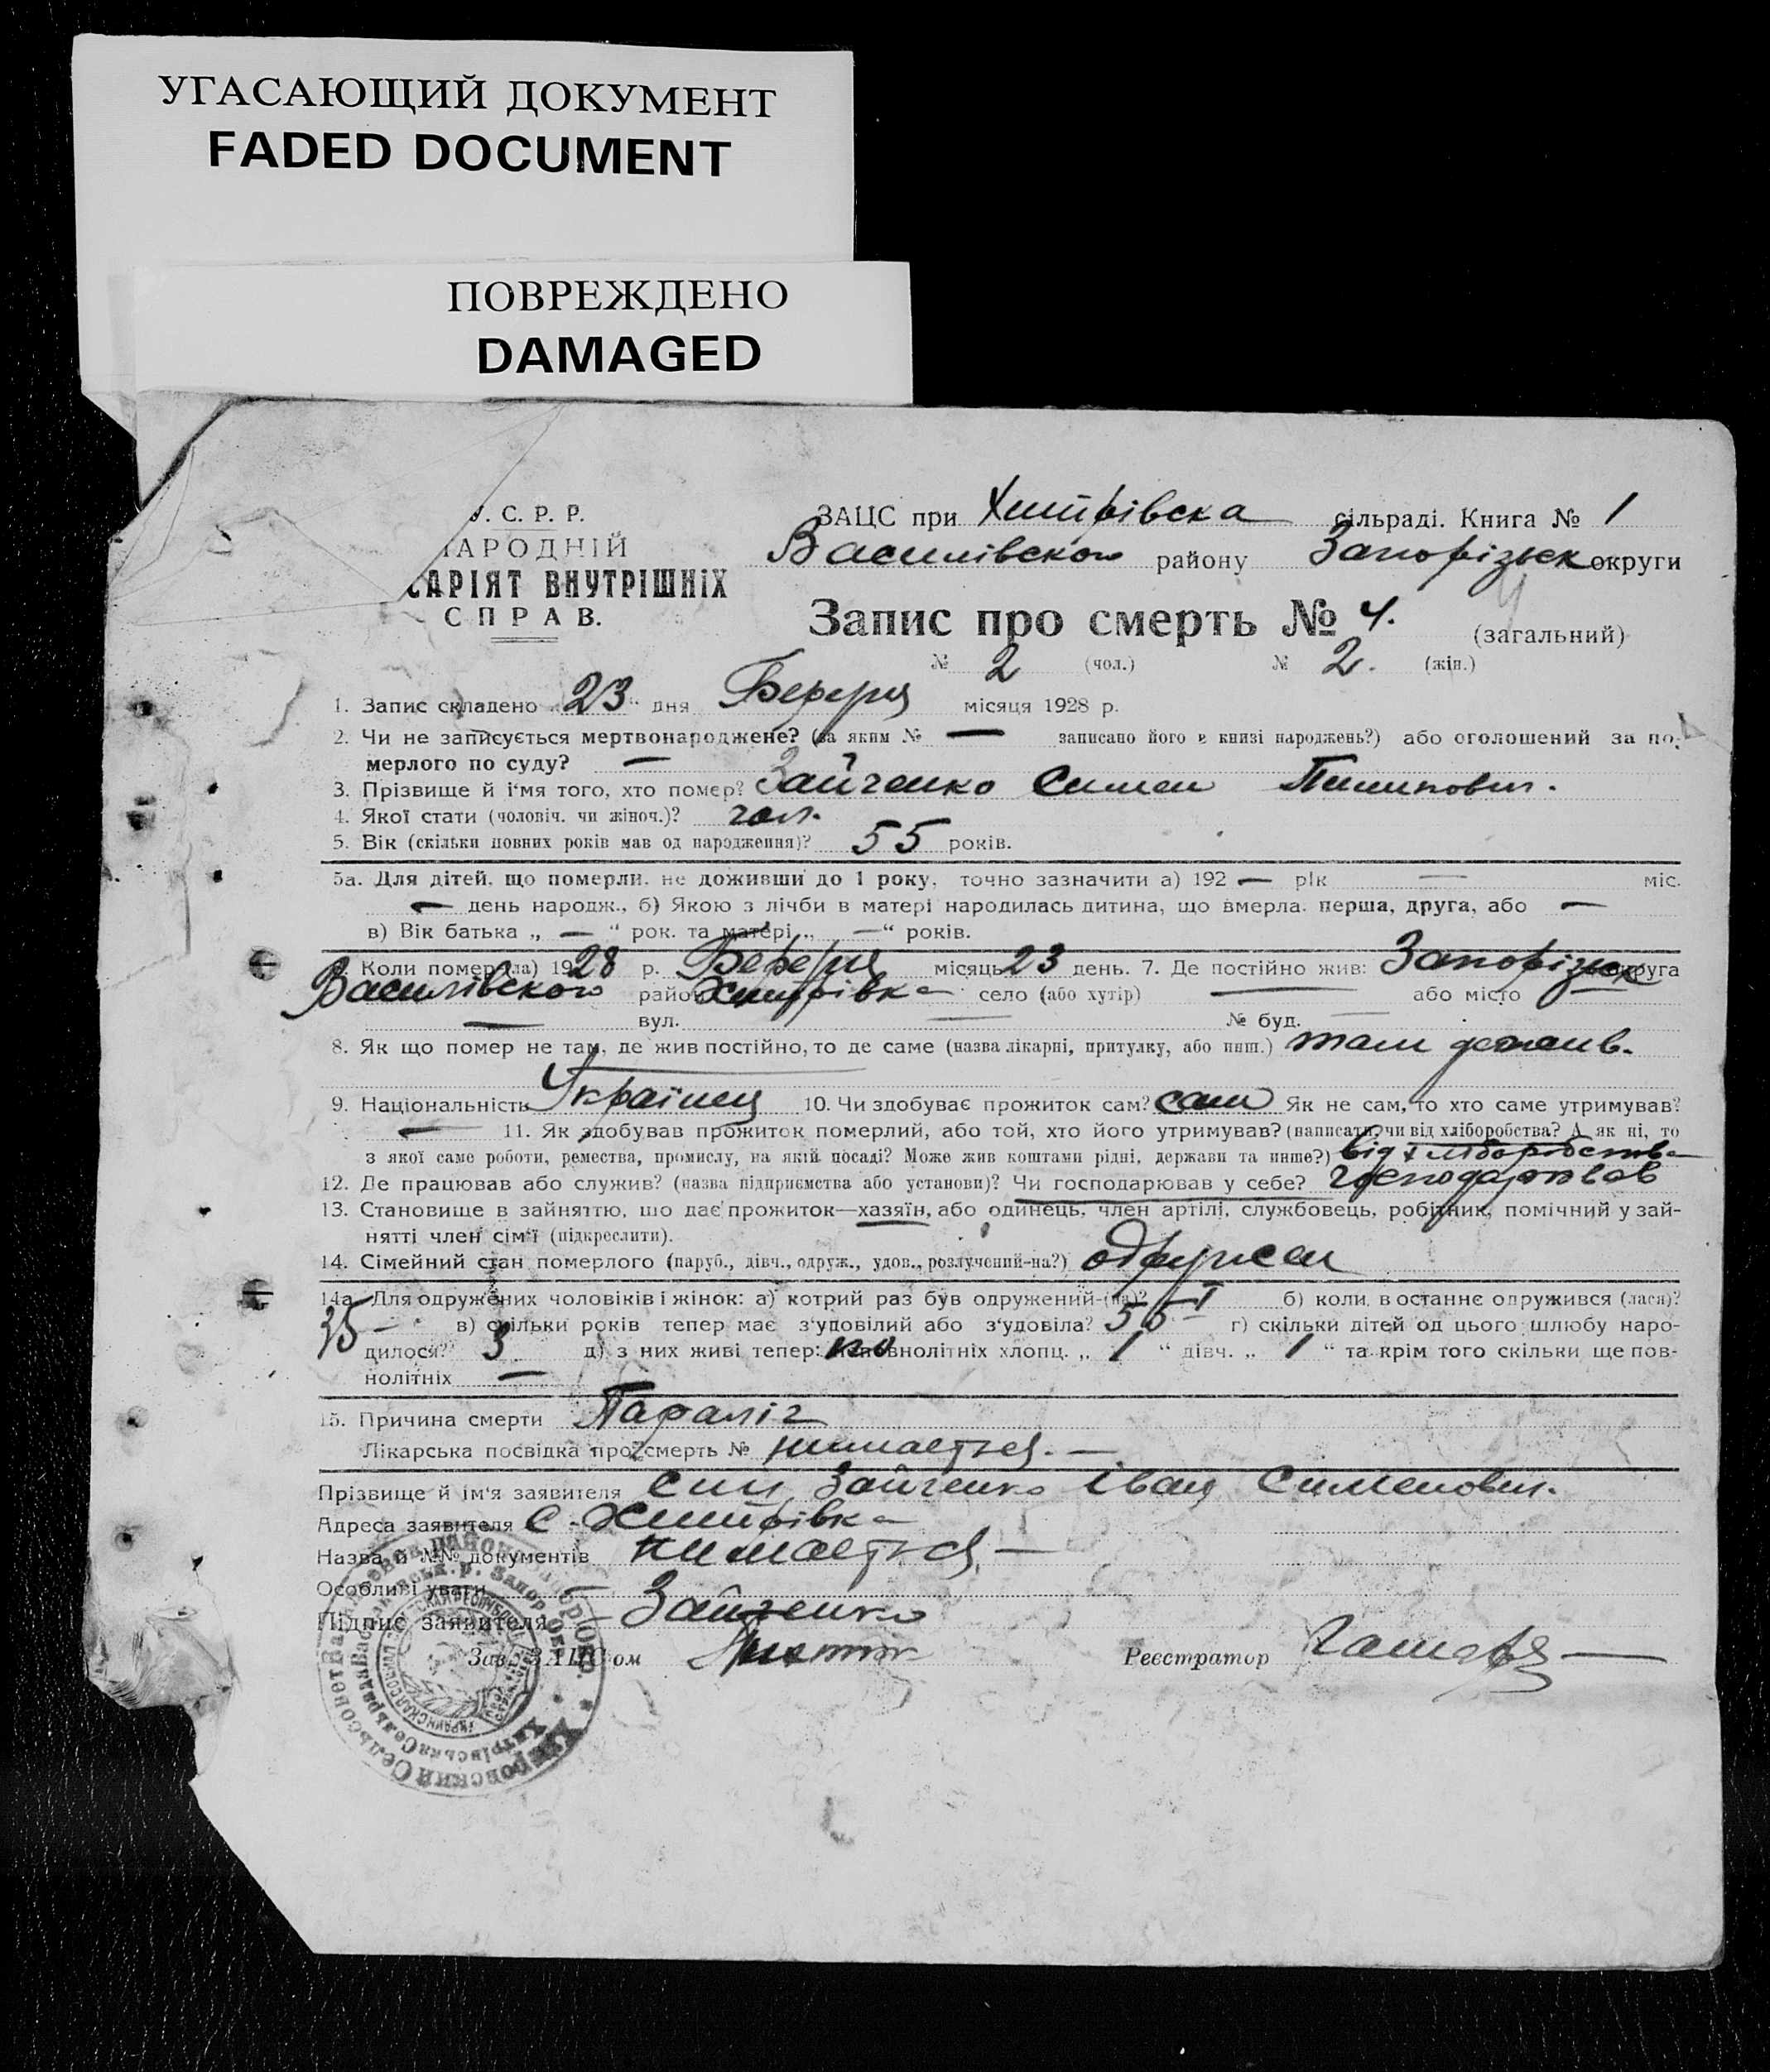 УГАСАЮЩИЙ ДОКУМЕНТ
FADED DOCUMENT
ПОВРЕЖДЕНО
DAMAGED
У. С. Р. Р.
НАРОДНІЙ
САРІЯТ ВНУТРІШНІХ
СПРАВ.
ЗАЦС при Хитрівска сільраді. Книга № 1
Василівского району Запорізьк округи
Запис про смерть № 4. (загальний)
№ 2 (чол.) № 2. (жін.)
1. Запис складено „23“ дня Березня місяця 1928 р.
2. Чи не записується мертвонароджене? (за яким № — записано його в книзі народжень?) або оголошений за по-
мерлого по суду? —
3. Прізвище й ім'я того, хто помер? Зайченко Симен Пилипович.
4. Якої стати (чоловіч. чи жіноч.)? чол.
5. Вік (скільки повних років мав од народження)? 55 років.
5а. Для дітей, що померли, не доживши до 1 року, точно зазначити а) 192 — рік — міс.
— день народж., б) Якою з лічби в матері народилась дитина, що вмерла. перша, друга, або —
в) Вік батька „ — “ рок. та матері „ — “ років.
6. Коли помер(ла) 1928 р. Березня місяць 23 день. 7. Де постійно жив: Запорізьк округа
Василівского район Хитрівка село (або хутір) — або місто —
— вул. — № буд. —
8. Як що помер не там, де жив постійно, то де саме (назва лікарні, притулку, або инш.) там де жив.
9. Національність Українец 10. Чи здобуває прожиток сам? сам Як не сам, то хто саме утримував?
— 11. Як здобував прожиток померлий, або той, хто його утримував? (написати, чи від хліборобства? А як ні, то
з якої саме роботи, ремества, промислу, на якій посаді? Може жив коштами рідні, держави та инше?) від хліборобства
12. Де працював або служив? (назва підприємства або установи)? Чи господарював у себе? господарював
13. Становище в зайняттю, що дає прожиток—хазяїн, або одинець, член артілі, службовець, робітник, помічний у зай-
нятті член сім'ї (підкреслити).
14. Сімейний стан померлого (паруб., дівч., одруж., удов., розлучений-на?) одружен
14а. Для одружених чоловіків і жінок: а) котрий раз був одружений-(на)? I б) коли в останнє одружився (лася)?
35 — в) скільки років тепер має з'удовілий або з'удовіла? 55 — г) скільки дітей од цього шлюбу наро-
дилося? 3 д) з них живі тепер: неповнолітніх хлопц. „ 1 “ дівч. „ 1 “ та крім того скільки ще пов-
нолітніх —
15. Причина смерти Параліч
Лікарська посвідка про смерть № нимається. —
Прізвище й ім'я заявителя син Зайченко Іван Сименович.
Адреса заявителя С. Хитрівка
Назва й №№ документів нимається. —
Особливі уваги —
Підпис заявителя Зайченко
Зав. ЗАЦСом Реєстратор